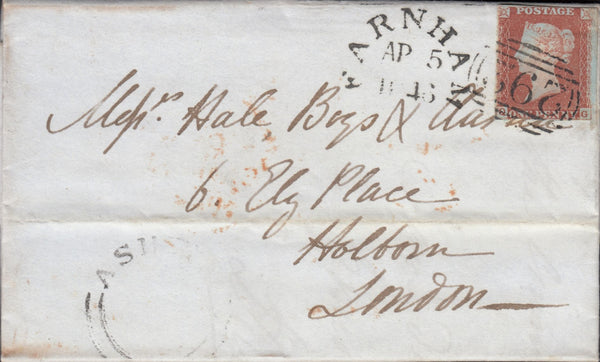 FARNHAM
AP 5
1846
POSTAGE
Messrs Hale Boys &
6 Ely Place
Holborn
London